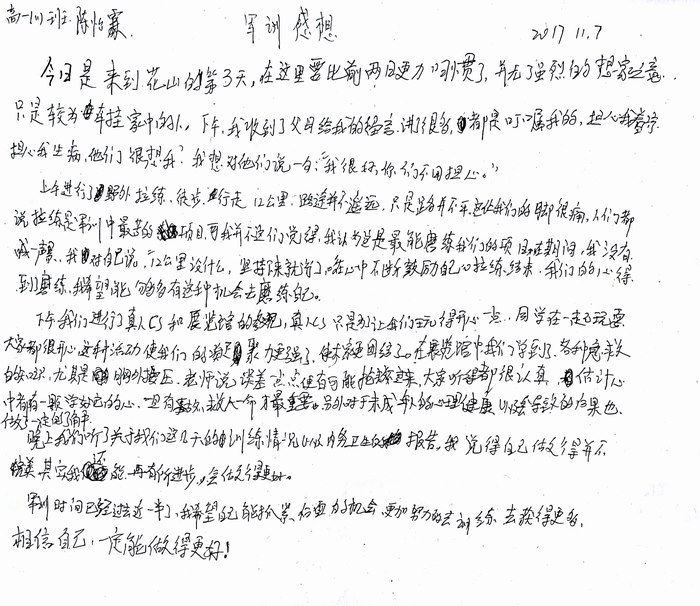 高一(1)班 陈怡霖 军训感想 2017 11.7
今日是来到花山的第3天,在这里要比前两日更加习惯了,并无了强烈的想家之意.
只是较为牵挂家中的人,下午,我收到了父母给我的留言,讲了很多,都是叮嘱我的,担心我
担心我生病,他们很想我?我想对他们说一句:“我很好,你们不用担心。”
上午进行了野外拉练,徒步行走12公里,路途并不遥远,只是路并不平,使我们的脚很痛,人们都
说拉练是军训中最苦的项目,可我并不这们觉得,我认为这是最能磨练我们的项目,在期间,我没有
喊一声,我对自己说,“12公里没什么,坚持下来就行了。”在心中不断鼓励自己,拉练结束,我们的心得
到磨练,我希望能够多有这种机会去磨练自己。
下午我们进行了真人CS和展览馆的参观,真人CS只是让我们玩得开心一点,同学在一起玩耍
大家都很开心,这种活动使我们的凝聚力更强了,使大家更团结了。在展览馆中我们学到了各种急救
的知识,尤其是胸外按压,老师说误差一点点便有可能抢救过来,大家听得都很认真,估计心
中都有一颗学好它的心,救人一命才最重要。另外对于未成年人的心理健康以及会导致的后果也
做了一定的了解。
晚上我们听了关于我们这几天的训练情况以及内务卫生的报告,我觉得自己做得并不
完美,其实我还能再有所进步,会做得更好。
军训时间已经过去近一半了,我希望自己能抓紧仅有的机会,更加努力的去训练,去获得更多,
相信自己,一定能做得更好!